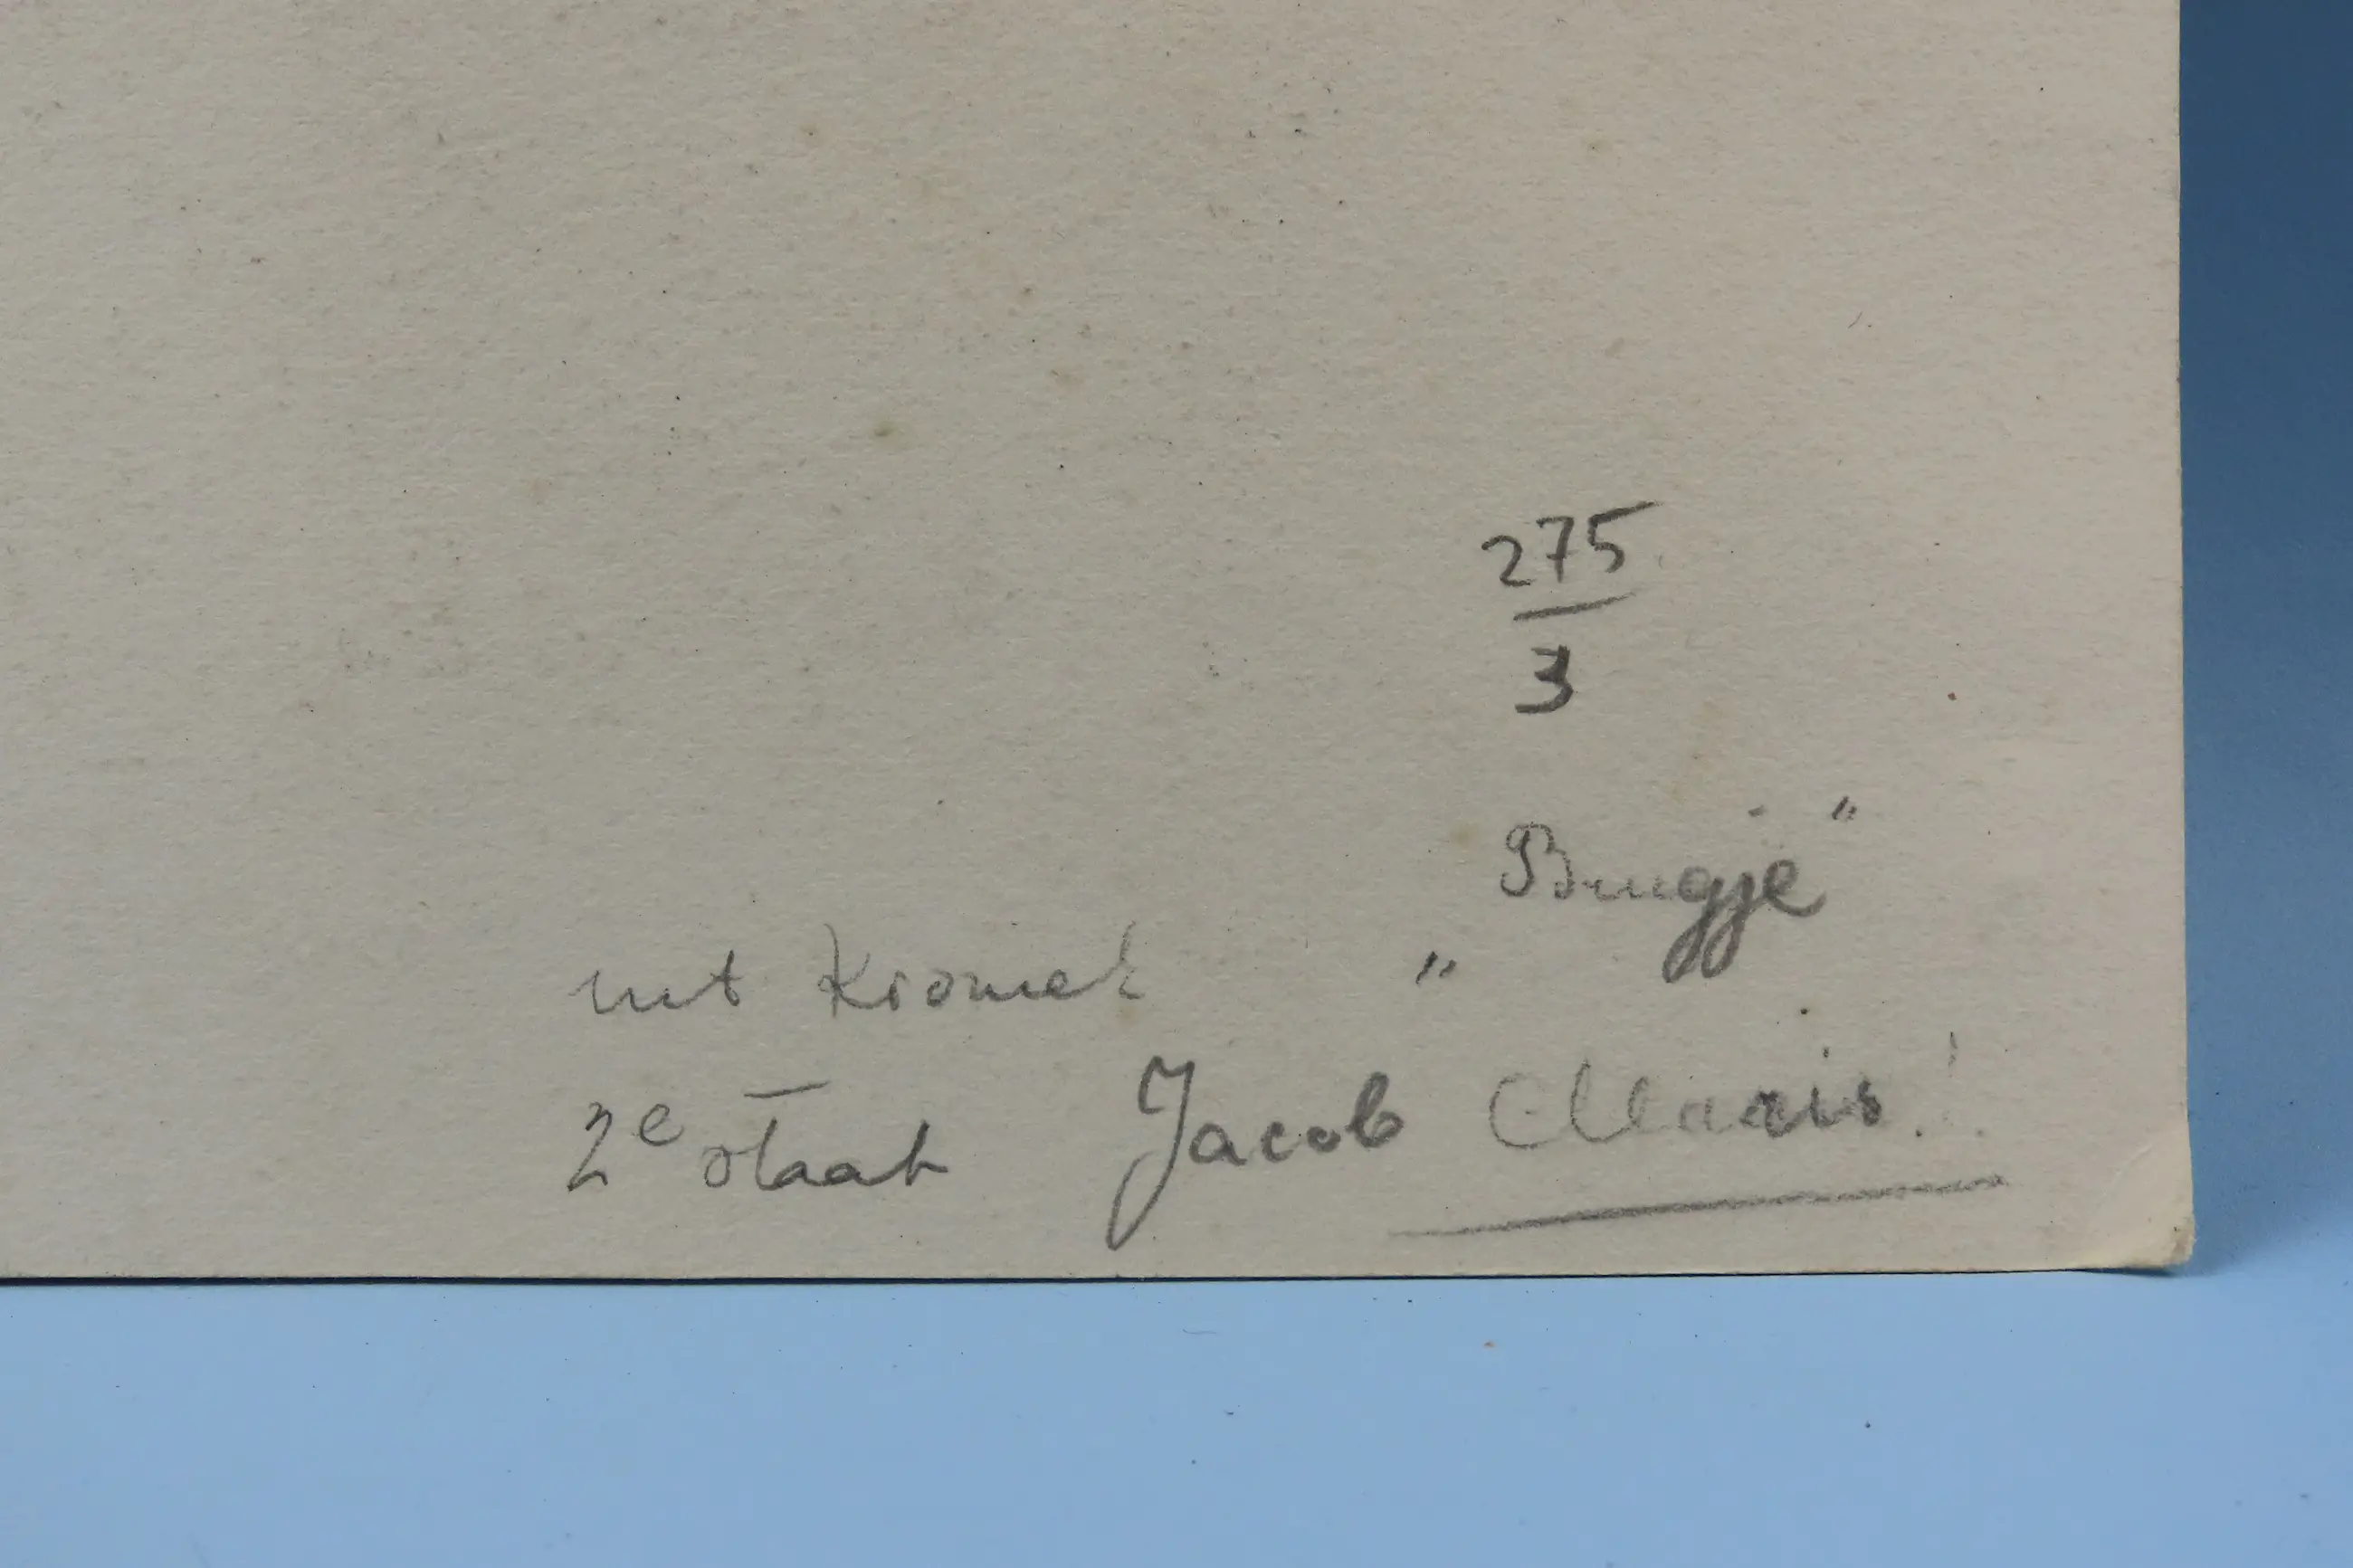 275
3
„Brugje”
uit Kroniek
2e staat Jacob Maris!